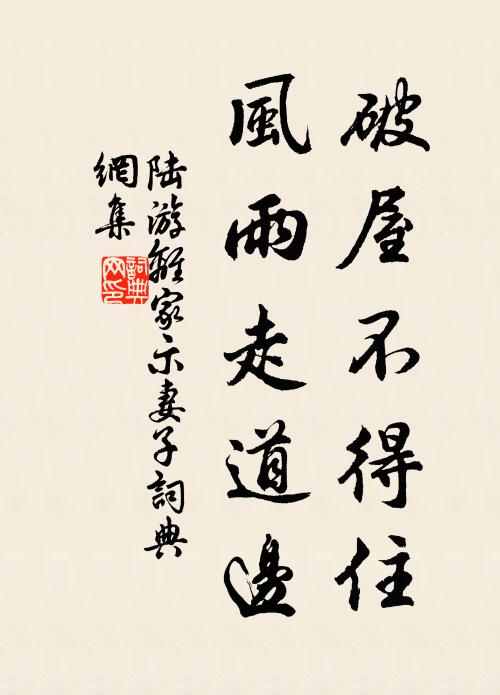 破屋不得住
風雨走道邊
陸游離家示妻子詞典
網集
詞典
网印